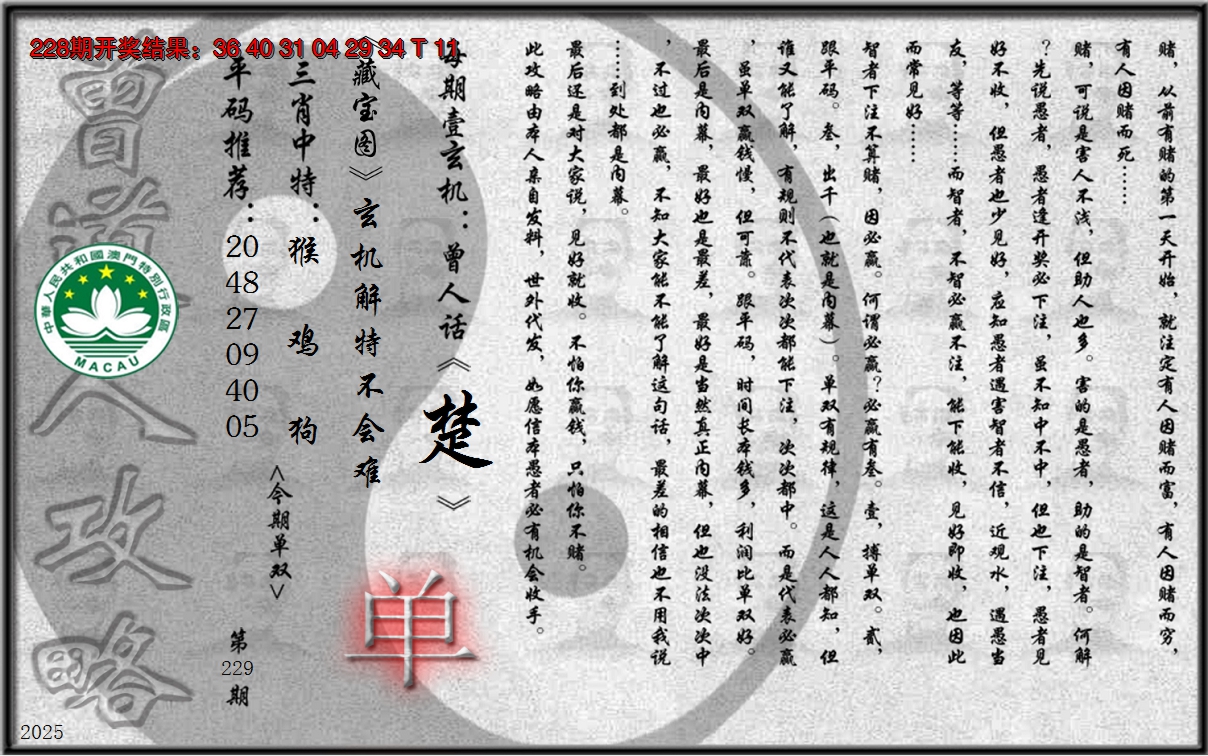 228期开奖结果：36 40 31 04 29 34 T 11
赌，从前有赌的第一天开始，就注定有人因赌而富，有人因赌而穷，
有人因赌而死……
赌，可说是害人不浅，但助人也多。害的是愚者，助的是智者。何解
？先说愚者，愚者逢开奖必下注，虽不知中不中，但也下注，愚者见
好不收，但愚者也少见好，应知愚者遇害智者不信，近观水，遇愚当
友，等等……而智者，不智必赢不注，能下能收，见好即收，也因此
而常见好……
智者下注不算赌，因必赢。何谓必赢？必赢有叁。壹，搏单双。贰，
跟平码。叁，出千（也就是内幕）。单双有规律，这是人人都知，但
谁又能了解，有规则不代表次次都能下注，次次都中。而是代表必赢
，虽单双赢钱慢，但可靠。跟平码，时间长本钱多，利润比单双好。
最后是内幕，最好也是最差，最好是当然真正内幕，但也没法次次中
，不过也必赢，不知大家能不能了解这句话，最差的相信也不用我说
……到处都是内幕。
最后还是对大家说，见好就收。不怕你赢钱，只怕你不赌。
此攻略由本人亲自发料，世外代发，如愿信本愚者必有机会收手。
每期壹玄机：曾人话《楚》
《藏宝图》玄机解特不会难
单
三肖中特：猴 鸡 狗
<今期单双>
平码推荐：
20
48
27
09
40
05
第
229
期
曾道人攻略
中華人民共和國澳門特別行政區
MACAU
2025